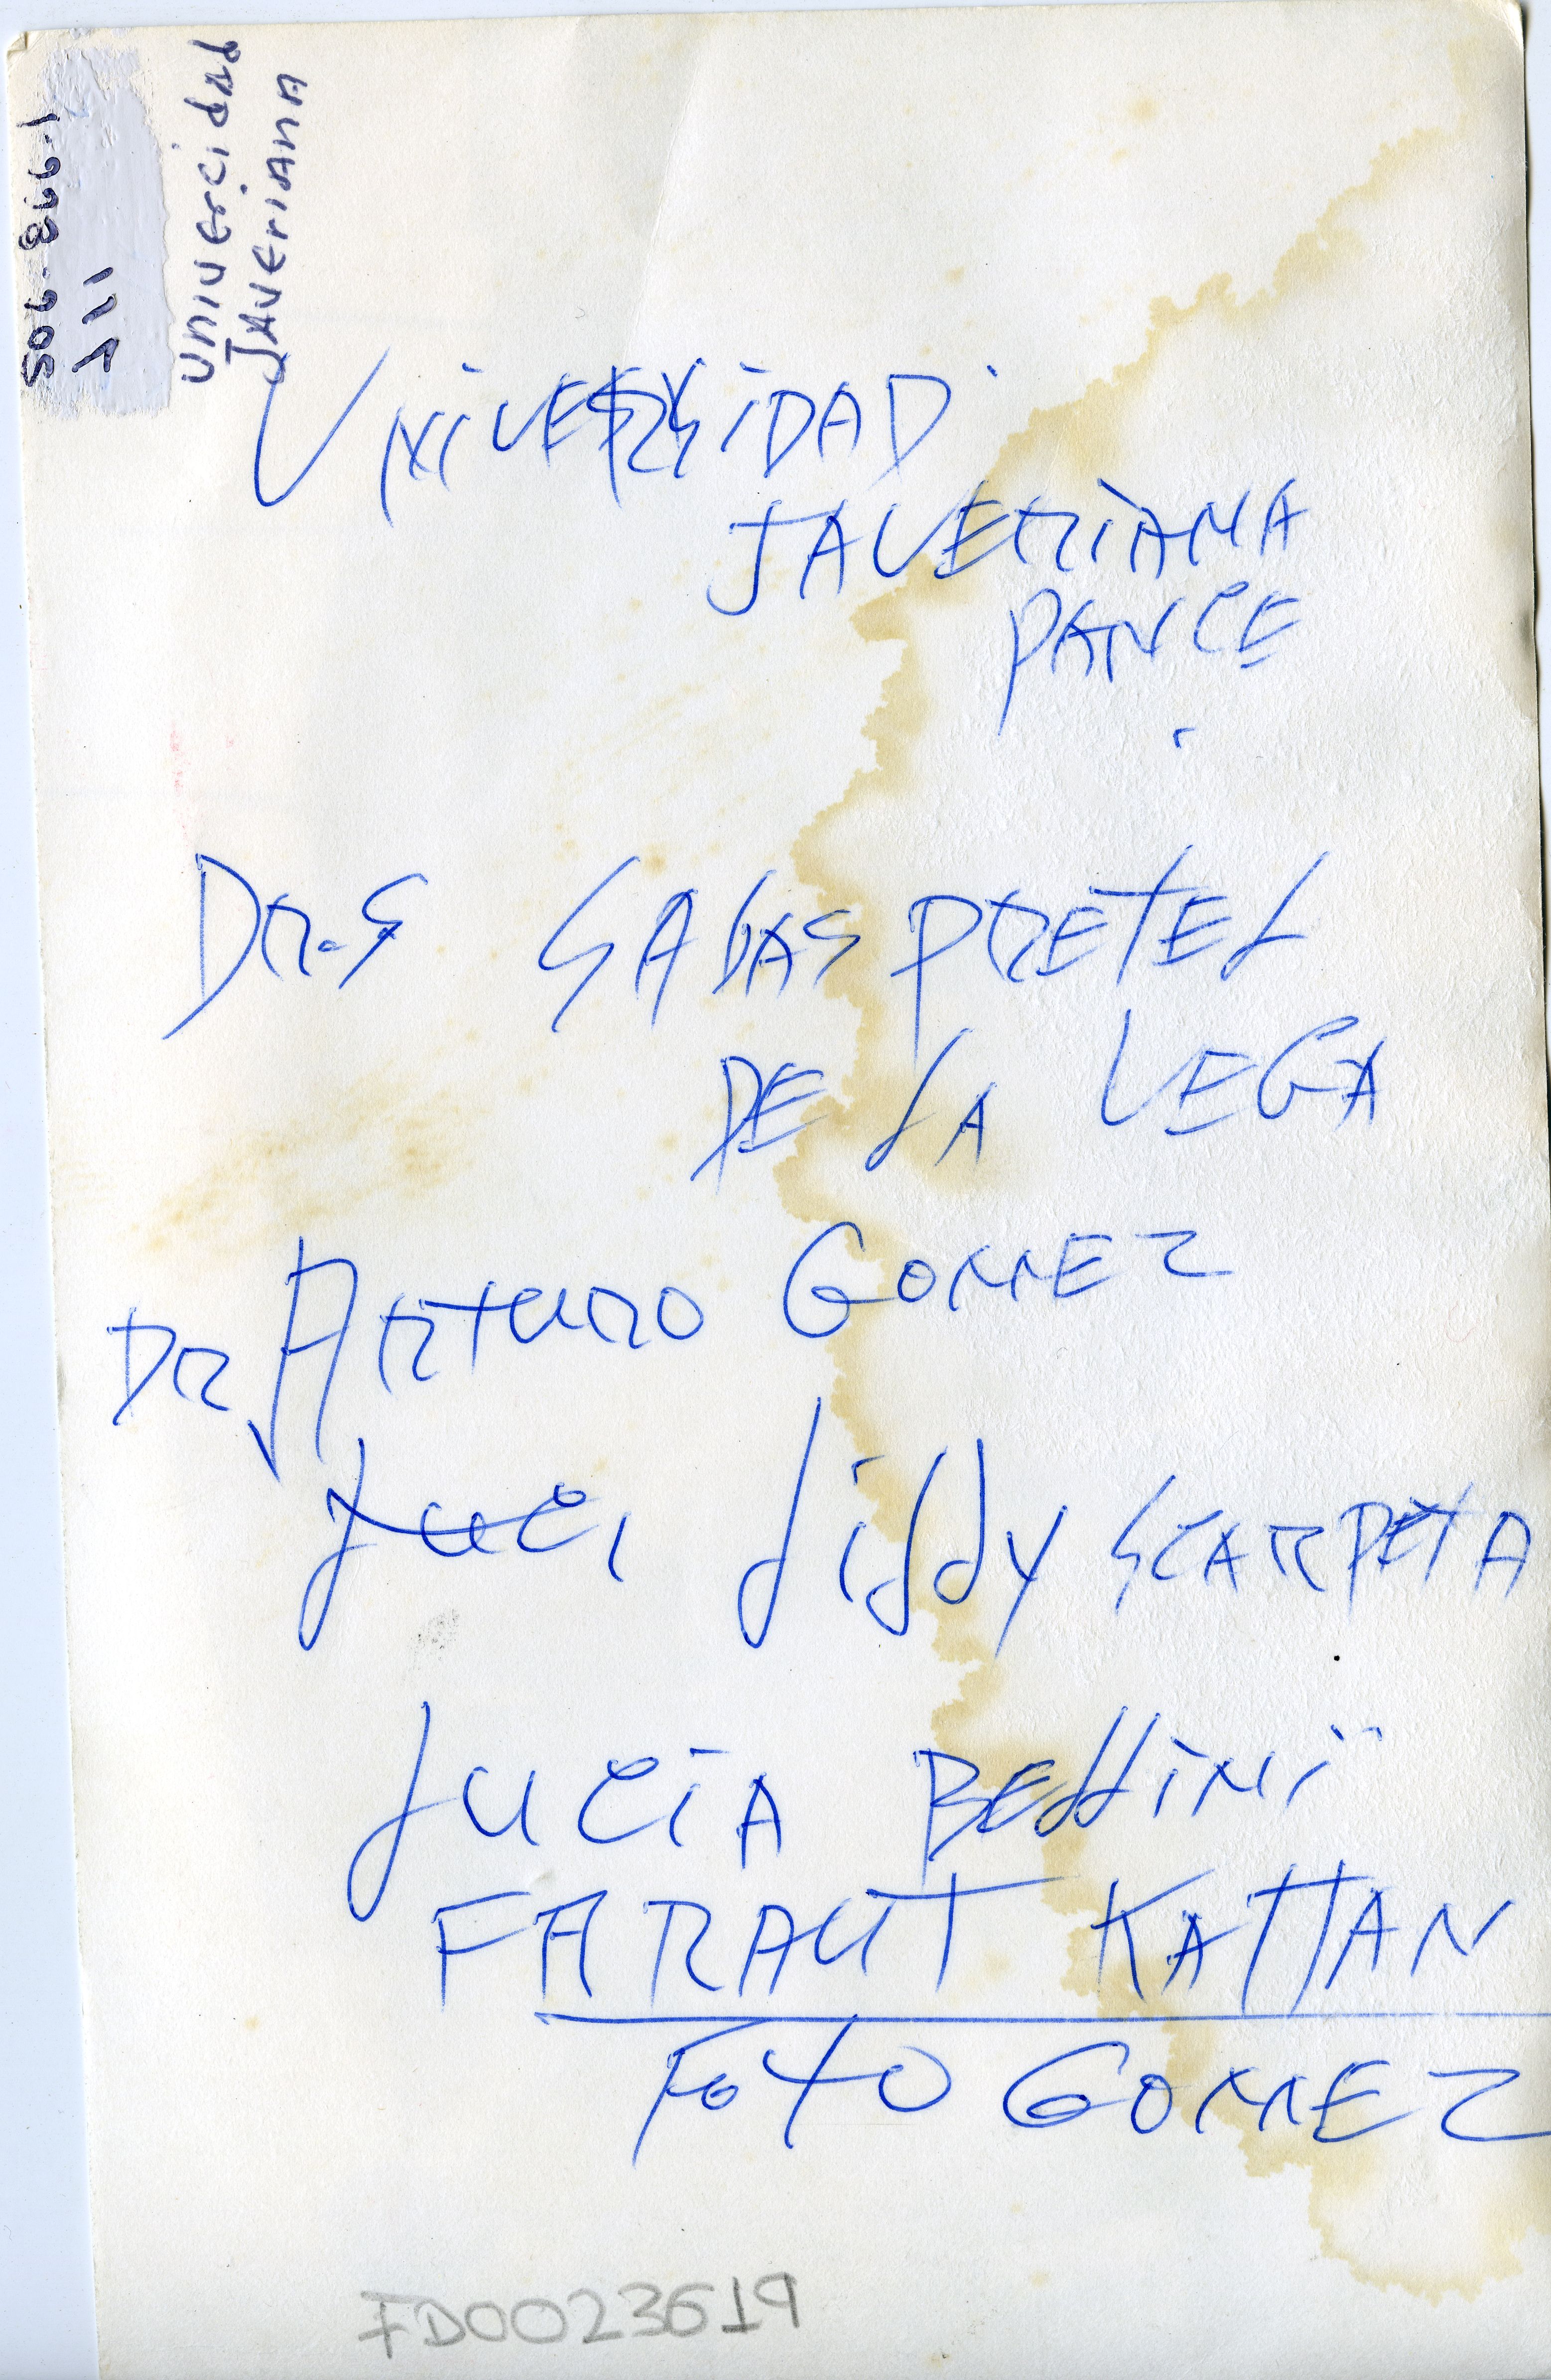 Univercidad
Javeriana
UNIVERSIDAD
JAVERIANA
PANCE
DR.S SABAS PRETEL
DE LA VEGA
DR ARTURO GOMEZ
LUCI LILLY SCARPETA
LUCIA BELLINI
FARAUT KATTAN
FOTO GOMEZ
FD0023619